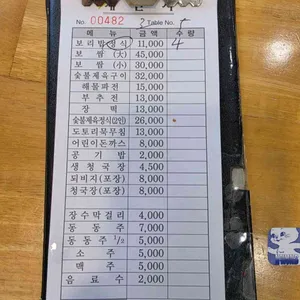 No. 00482 3 Table No. 5
메뉴 금액 수량
보리밥정식 11,000 4
보쌈(大) 45,000
보쌈(小) 30,000
숯불제육구이 32,000
해물파전 15,000
부추전 13,000
장떡 13,000
숯불제육정식(2인) 26,000
도토리묵무침 13,000
어린이돈까스 8,000
공기밥 2,000
생청국장 4,500
퇴비지(포장) 8,000
청국장(포장) 8,000
장수막걸리 4,000
동동주 7,000
동동주 1/2 5,000
소주 5,000
맥주 5,000
음료수 2,000